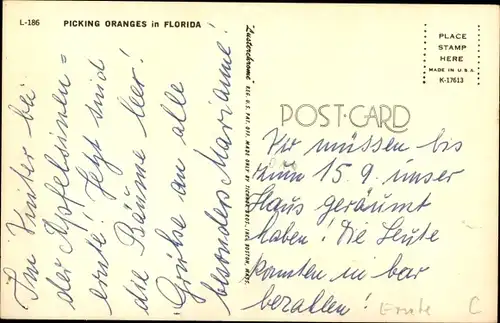 L-186
PICKING ORANGES in FLORIDA
Im Winter bei
der Apfelsinen=
ernte. Jetzt sind
die Bäume leer!
Grüße an alle
besonders Marianne!
"Lusterchrome" REG. U.S. PAT. OFF. MADE ONLY BY TICHNOR BROS., INC., BOSTON, MASS.
PLACE
STAMP
HERE
MADE IN U.S.A.
K-17613
POST-CARD
Wir müssen bis
zum 15.9. unser
Haus geräumt
haben! Die Leute
konnten in bar
bezahlen!
Ernte C